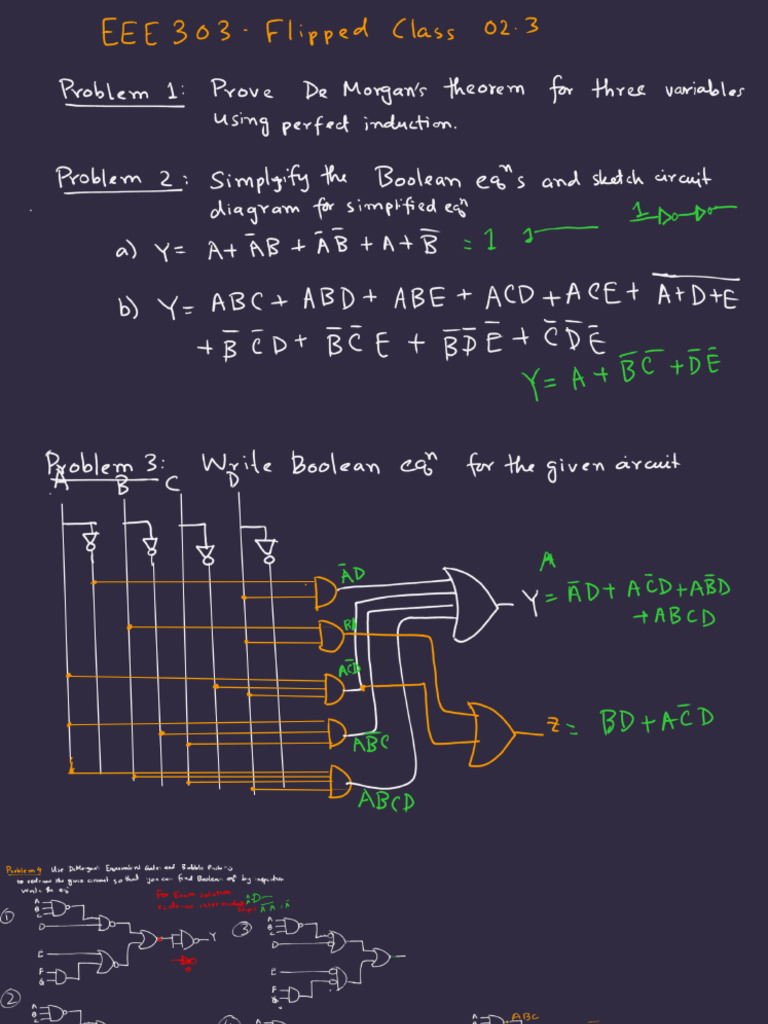 EEE 303 - Flipped Class 02.3
Problem 1: Prove De Morgan's theorem for three variables
using perfect induction.
Problem 2: Simplgify the Boolean eqⁿs and sketch circuit
diagram for simplified eqⁿ
1
a) Y = A + A̅B + A̅ B̅ + A + B̅ = 1
b) Y = ABC + ABD + ABE + ACD + ACE + \overline{A+D+E}
+ B̅ C̅ D + B̅ C̅ E + B̅ D̅ E̅ + C̅ D̅ E̅
Y = A + B̅ C̅ + D̅ E̅
Problem 3: Write Boolean eqⁿ for the given circuit
A B C D
A̅D
A
Y = A̅D + AC̅D + AB̅D
+ ABCD
BD
AC̅D
Z = BD + AC̅D
AB̅C
ABCD
Problem 4 Use DeMorgan Equivalent Gates and Bubble Pushing
to redraw the given circuit so that you can find Boolean eqⁿ by inspection
Write the eqⁿ
For Exam solution
1
A
B
C
D
E
F
G
Y
3
A
B
C
D
E
F
G
2
A
B
A
B
ABC